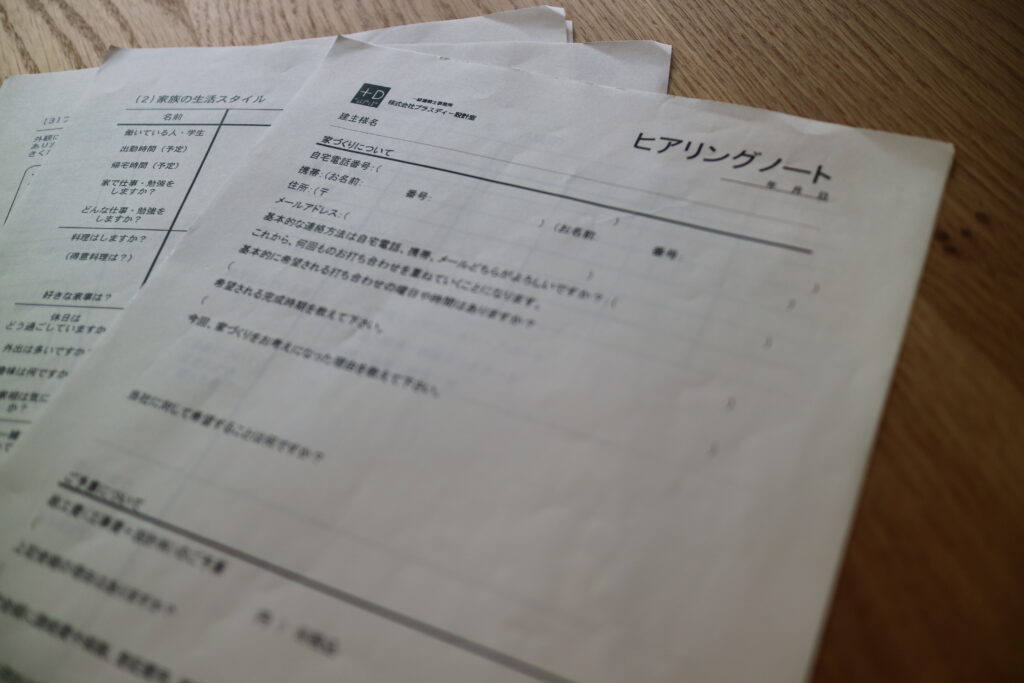 +D
一級建築士事務所
株式会社プラスディー設計室
ヒアリングノート
年 月 日
建主様名
家づくりについて
自宅電話番号:( )
携帯:(お名前: 番号: ) (お名前: 番号: )
住所:(〒 )
メールアドレス:( )
基本的な連絡方法は自宅電話、携帯、メールどちらがよろしいですか?:( )
これから、何回ものお打ち合わせを重ねていくことになります。
基本的に希望される打ち合わせの曜日や時間はありますか?
( )
希望される完成時期を教えて下さい。
( )
今回、家づくりをお考えになった理由を教えて下さい。
当社に対して希望することは何ですか?
ご予算について
上記金額の根拠はありますか?
(2)家族の生活スタイル
名前
働いている人・学生
出勤時間(予定)
帰宅時間(予定)
家で仕事・勉強を
しますか?
どんな仕事・勉強を
しますか?
料理はしますか?
(得意料理は?)
好きな家事は?
休日は
どう過ごしていますか
外出は多いですか
趣味は何ですか
か?
(3)
外観に